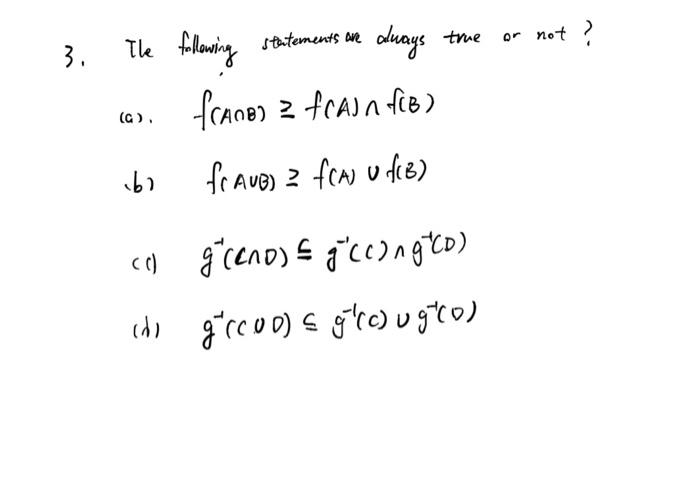 3. The following statements are always true or not ?
(a). f(A∩B) ⊇ f(A) ∩ f(B)
(b) f(A∪B) ⊇ f(A) ∪ f(B)
(c) g⁻¹(C∩D) ⊆ g⁻¹(C) ∩ g⁻¹(D)
(d) g⁻¹(C∪D) ⊆ g⁻¹(C) ∪ g⁻¹(D)